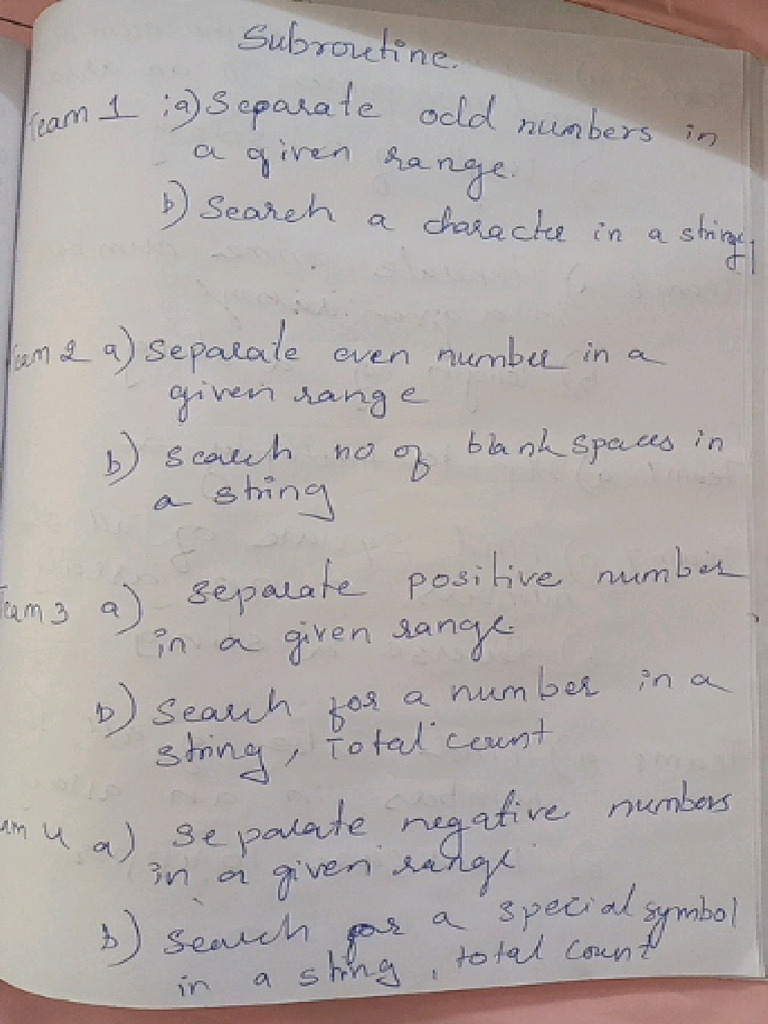 Subroutine.
Team 1 : a) Separate odd numbers in
a given range.
b) Search a character in a string
Team 2 a) Separate even number in a
given range
b) Search no of blank spaces in
a string
Team 3 a) separate positive number
in a given range.
b) Search for a number in a
string, Total count
am 4 a) Separate negative numbers
in a given range
b) Search for a special symbol
in a string, total count